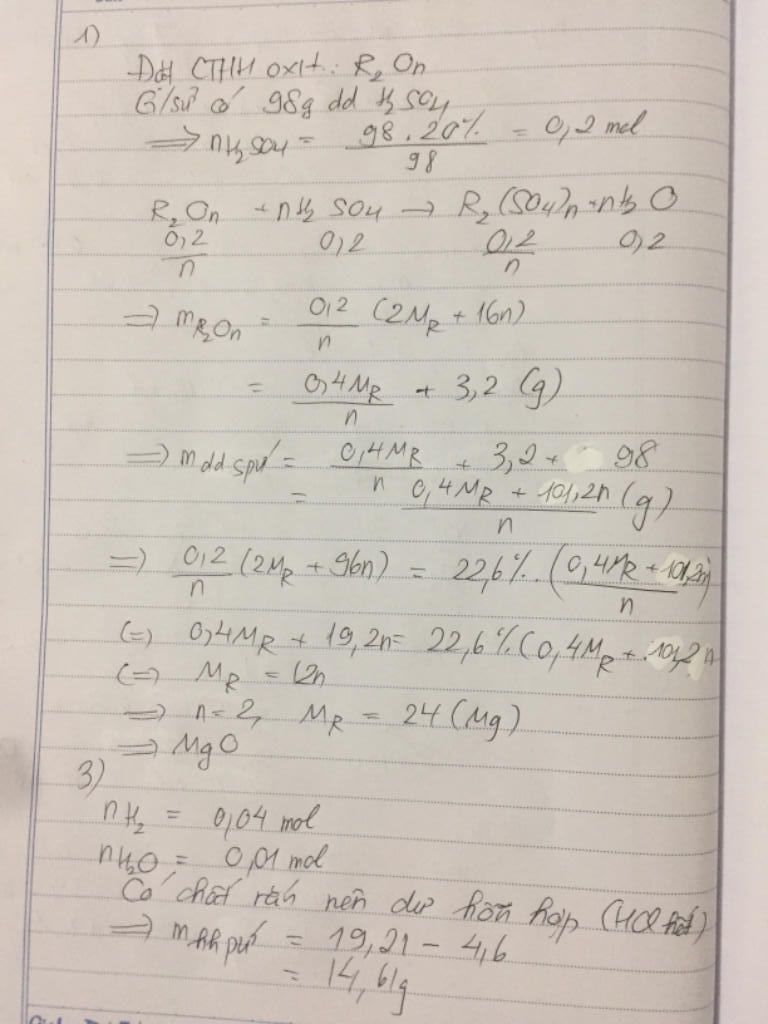 1)
Đặt CTHH oxit: R₂On
G/sử có 98g dd H₂SO₄
⟹ nH₂SO₄ = 98.20% / 98 = 0,2 mol
R₂On + nH₂SO₄ → R₂(SO₄)n + nH₂O
0,2/n 0,2 0,2/n 0,2
⟹ mR₂On = 0,2/n (2M_R + 16n)
= 0,4M_R/n + 3,2 (g)
⟹ m dd spứ = 0,4M_R/n + 3,2 + 98
= (0,4M_R + 101,2n)/n (g)
⟹ 0,2/n (2M_R + 96n) = 22,6%.(0,4M_R + 101,2n)/n
(=) 0,4M_R + 19,2n = 22,6%(0,4M_R + 101,2n
(=) M_R = 12n
⟹ n=2, M_R = 24 (Mg)
⟹ MgO
3)
nH₂ = 0,04 mol
nH₂O = 0,01 mol
Có chất rắn nên dư hỗn hợp (HCl hết)
⟹ m hh pứ = 19,21 – 4,6
= 14,61g